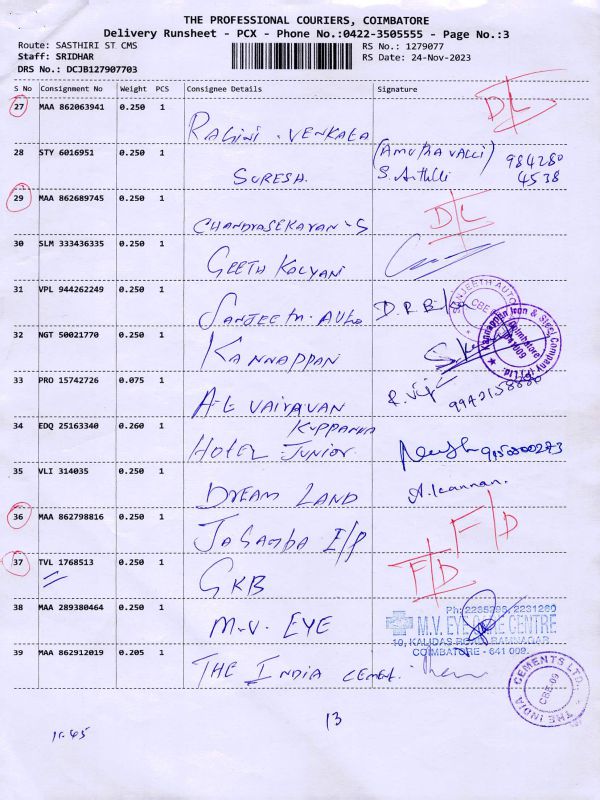 THE PROFESSIONAL COURIERS, COIMBATORE
Delivery Runsheet - PCX - Phone No.:0422-3505555 - Page No.:3
Route: SASTHIRI ST CMS
RS No.: 1279077
Staff: SRIDHAR
RS Date: 24-Nov-2023
DRS No.: DCJB127907703
S No Consignment No Weight PCS Consignee Details Signature
27 MAA 862063941 0.250 1
RAGINI . VENKATA
D/L
28 STY 6016951 0.250 1
SURESH.
(AMUTHA VALLI)
984280
4538
29 MAA 862689745 0.250 1
CHANDRASEKARAN - S
D/L
30 SLM 333436335 0.250 1
GEETH KALYANI
31 VPL 944262249 0.250 1
SANJEETH . AUTO
SANJEETH AUTO
CBE
32 NGT 50021770 0.250 1
KANNAPPAN
Kannappan Iron & Steel Company (P) Ltd.
Coimbatore
641009
33 PRO 15742726 0.075 1
A-L VAIRAVAN
34 EDQ 25163340 0.260 1
KUPPANNA
HOTEL JUNIOR
35 VLI 314035 0.250 1
DREAM LAND
A. Kannan.
36 MAA 862798816 0.250 1
F/D
37 TVL 1768513 0.250 1
GKB
F/D
38 MAA 289380464 0.250 1
M.V. EYE
Ph: 2235296, 2231260
M.V. EYE CARE CENTRE
10, KALIDAS ROAD, RAMNAGAR
COIMBATORE - 641 009.
39 MAA 862912019 0.205 1
THE INDIA CEMENT.
THE INDIA CEMENTS LTD.,
CBE-09
13
11.45